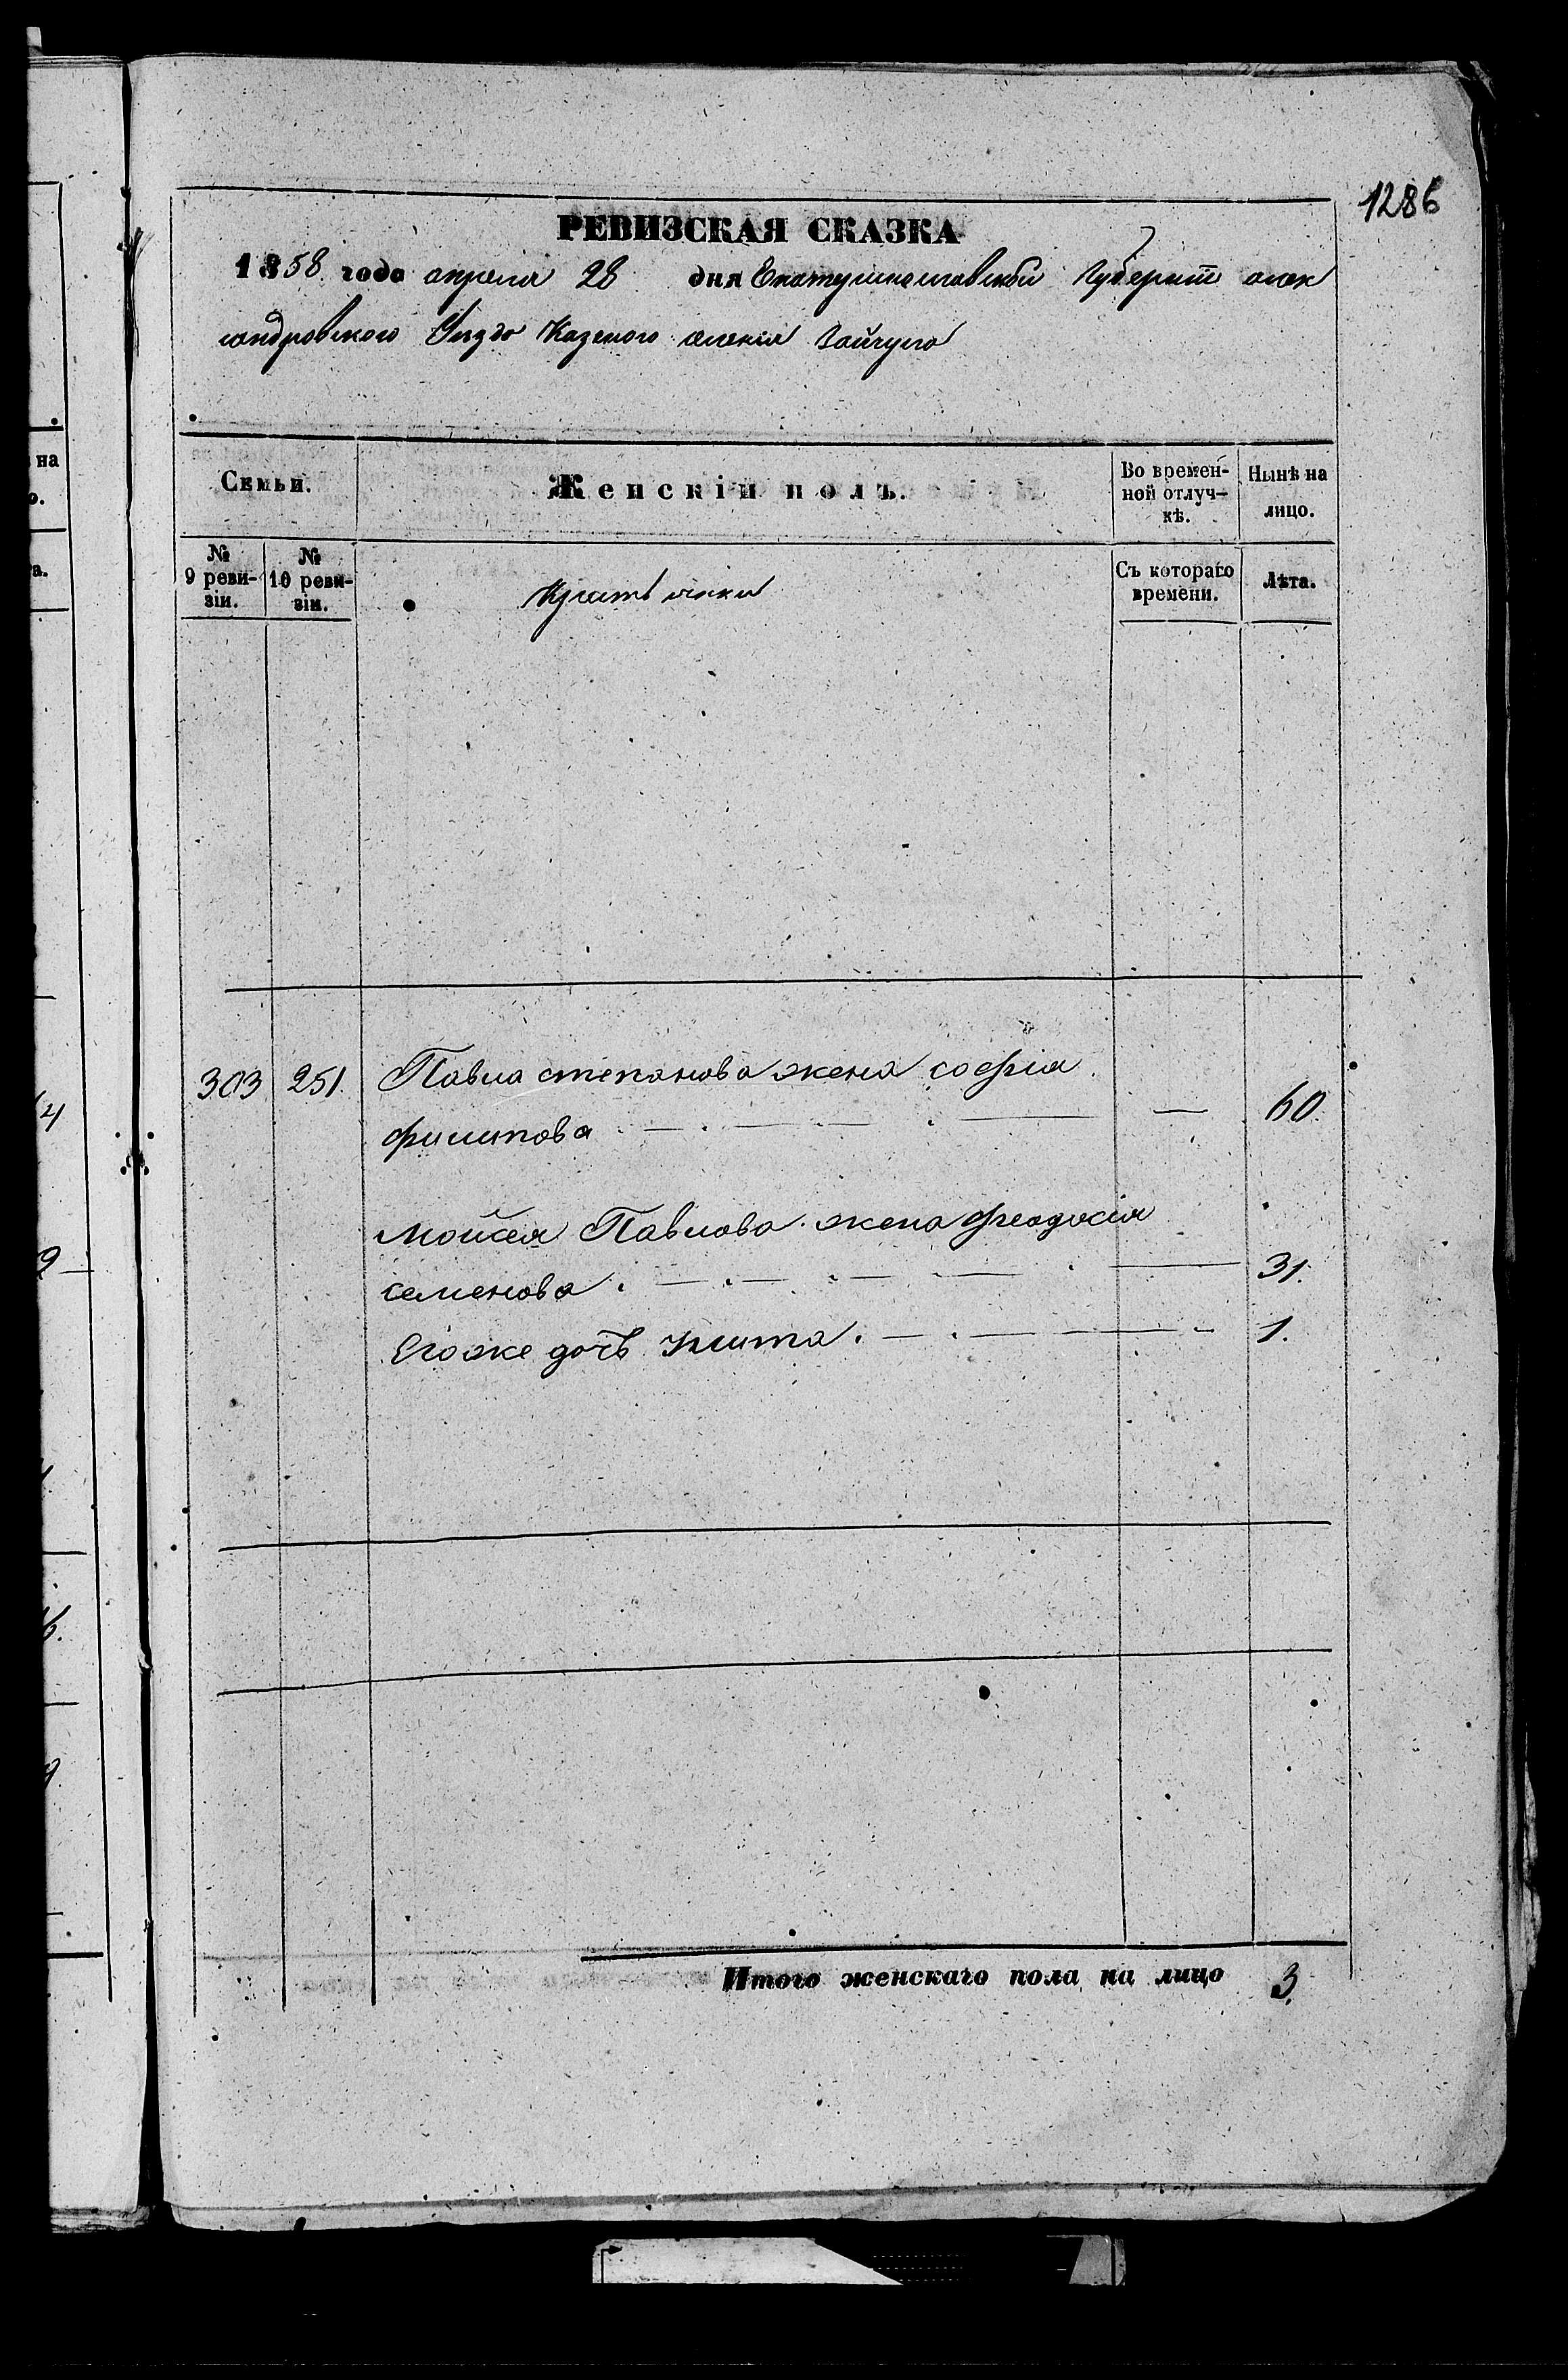 1286
РЕВИЗСКАЯ СКАЗКА
1858 года апреля 28 дня Екатеринославской Губернии алек
сандровского Уезда Казеного селения Зайцуго
Семьи.
Женскій полъ.
Во времен-
ной отлуч-
кѣ.
Нынѣ на
лицо.
№
9 реви-
зіи.
№
10 реви-
зіи.
Съ котораго
времени.
Лѣта.
303 251. Павла степанова жена софия
филипова 60.
Мойсея Павлова жена феодосия
семенова. 31.
Его же дочь 1.
Итого женскаго пола на лицо 3.
на
о.
а.